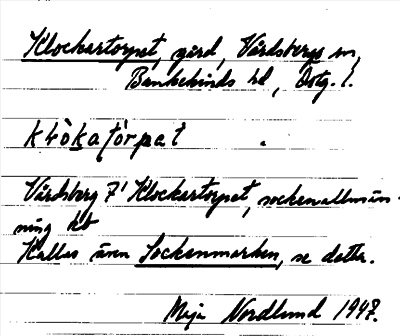 Klockartorpet, gård, Vårdsbergs sn,
Bankekinds hd, Östg. l.
klòkatórpat
Vårdsberg 7¹ Klockartorpet, sockenallmän-
ning kb
Kallas även Sockenmarken, se detta.
Maja Nordlund 1947.